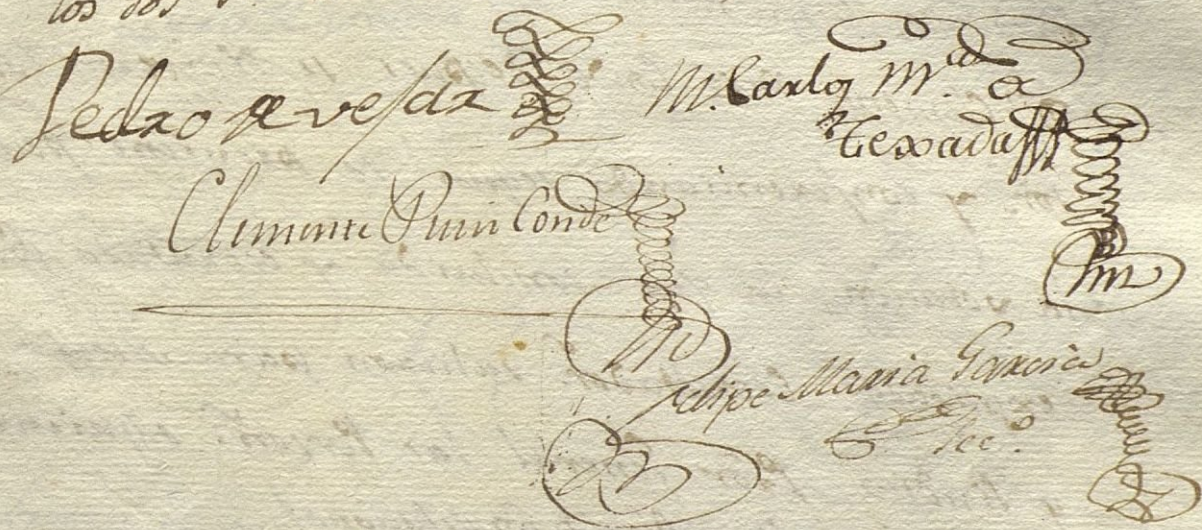 los dos
Pedro de vesar
M. Carlos M.ª de
Texada
Clemente Ruiz Conde
Felipe Maria Garcia
Sec.º